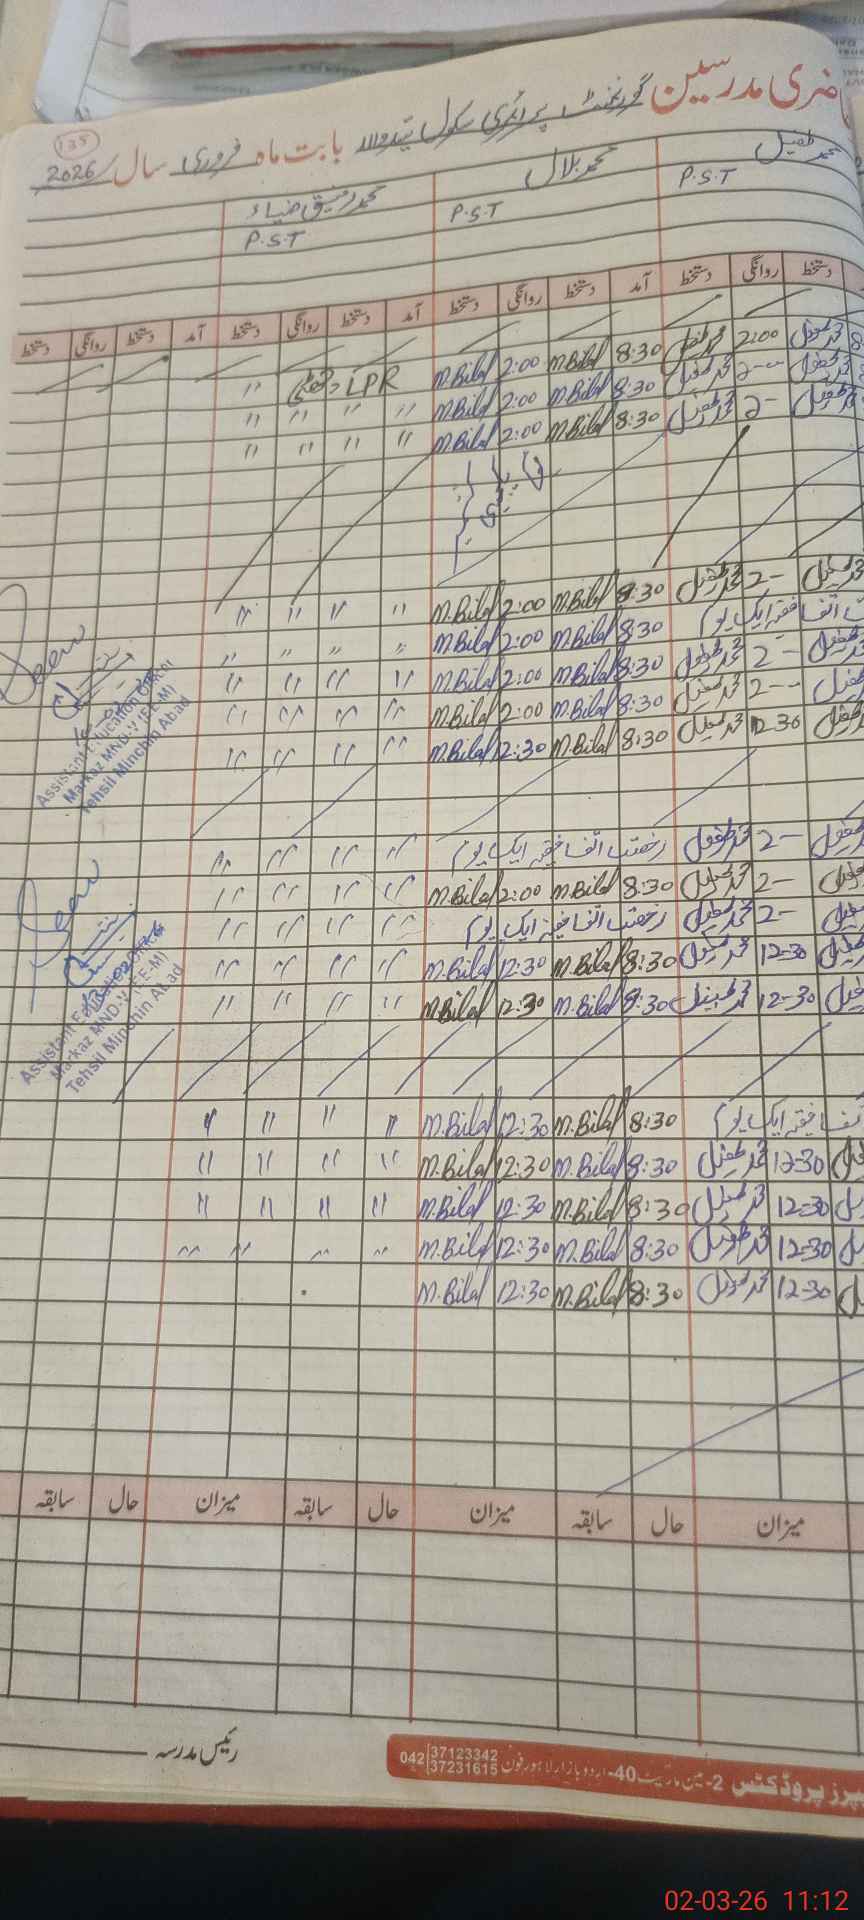 حاضری مدرسین گورنمنٹ پرائمری سکول بابت ماہ فروری سال 2026
135
محمد طفیل محمد بلال محمد رفیق ضیاء
P.S.T P.S.T P.S.T
دستخط روانگی دستخط آمد دستخط روانگی دستخط آمد دستخط روانگی دستخط آمد دستخط روانگی دستخط
محمد طفیل 2:00 محمد طفیل 8:30 M.Bilal 2:00 M.Bilal LPR "
محمد طفیل 2-- محمد طفیل 8:30 M.Bilal 2:00 M.Bilal " " " "
محمد طفیل 2- محمد طفیل 8:30 M.Bilal 2:00 M.Bilal " " " "
محمد طفیل 2- محمد طفیل 8:30 M.Bilal 2:00 M.Bilal " " " "
اتفاقیہ ایک یوم 8:30 M.Bilal 2:00 M.Bilal " " " "
محمد طفیل 2- محمد طفیل 8:30 M.Bilal 2:00 M.Bilal " " " "
طفیل 2-- محمد طفیل 8:30 M.Bilal 2:00 M.Bilal " " " "
طفیل 12-30 محمد طفیل 8:30 M.Bilal 12:30 M.Bilal " " " "
Assistant Education Officer
Markaz MND-V (EE-M)
Tehsil Minchin Abad
طفیل 2- محمد طفیل رخصت اتفاقیہ ایک یوم " " " "
طفیل 2- محمد طفیل 8:30 M.Bilal 2:00 M.Bilal " " " "
طفیل 2- محمد طفیل رخصت اتفاقیہ ایک یوم " " " "
طفیل 12-30 محمد طفیل 8:30 M.Bilal 12:30 M.Bilal " " " "
طفیل 12-30 محمد طفیل 8:30 M.Bilal 12:30 M.Bilal " " " "
Assistant Education Officer
Markaz MND-V (EE-M)
Tehsil Minchin Abad
اتفاقیہ ایک یوم 8:30 M.Bilal 12:30 M.Bilal " " " "
12-30 محمد طفیل 8:30 M.Bilal 12:30 M.Bilal " " " "
12-30 محمد طفیل 8:30 M.Bilal 12:30 M.Bilal " " " "
12-30 محمد طفیل 8:30 M.Bilal 12:30 M.Bilal " " " "
12-30 محمد طفیل 8:30 M.Bilal 12:30 M.Bilal
میزان حال سابقہ میزان حال سابقہ میزان حال سابقہ
رئیس مدرسہ
پیپرز پروڈکٹس 2-مین مارکیٹ 40-اردو بازار لاہور فون 042 37123342 37231615
02-03-26 11:12